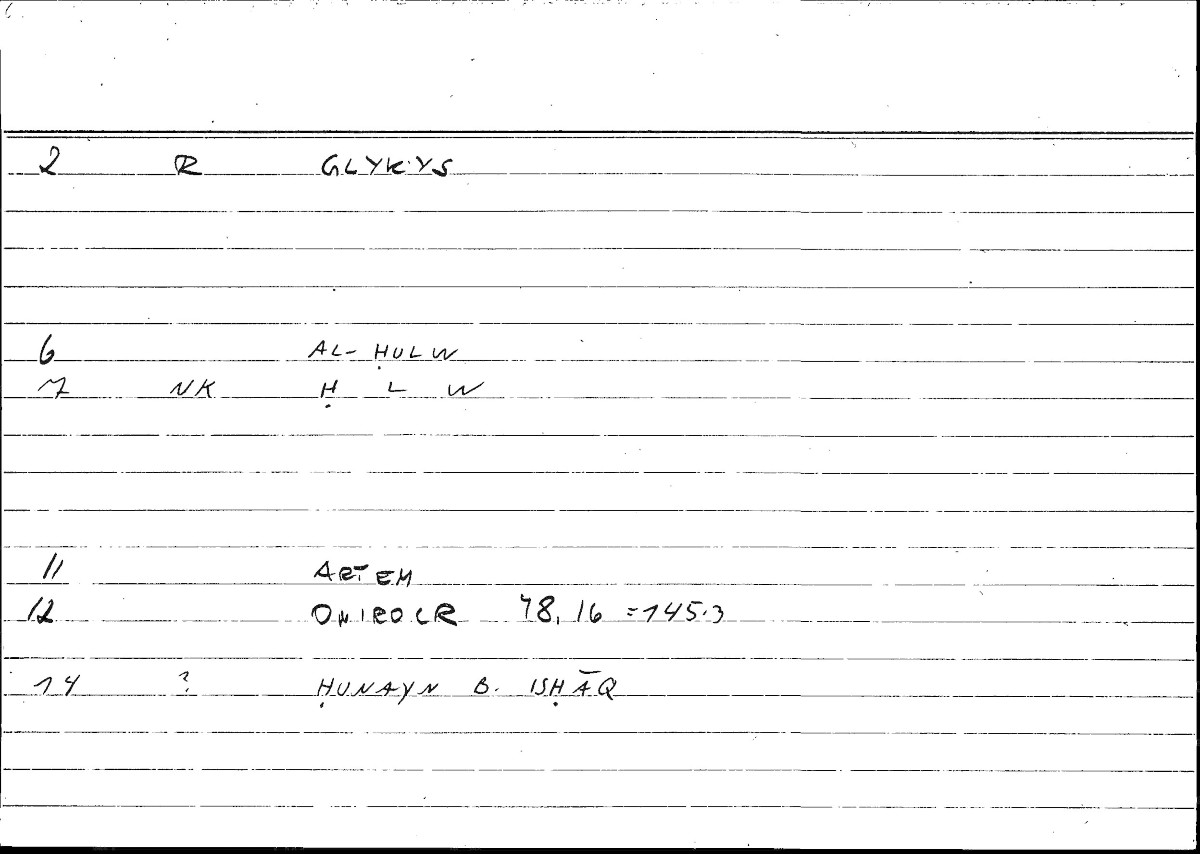 2 R GLYKYS
6 AL-ḤULW
7 NK Ḥ L W
11 ARTEM
12 ONIROCR 78, 16 =145.3
14 ? ḤUNAYN B. ISḤĀQ